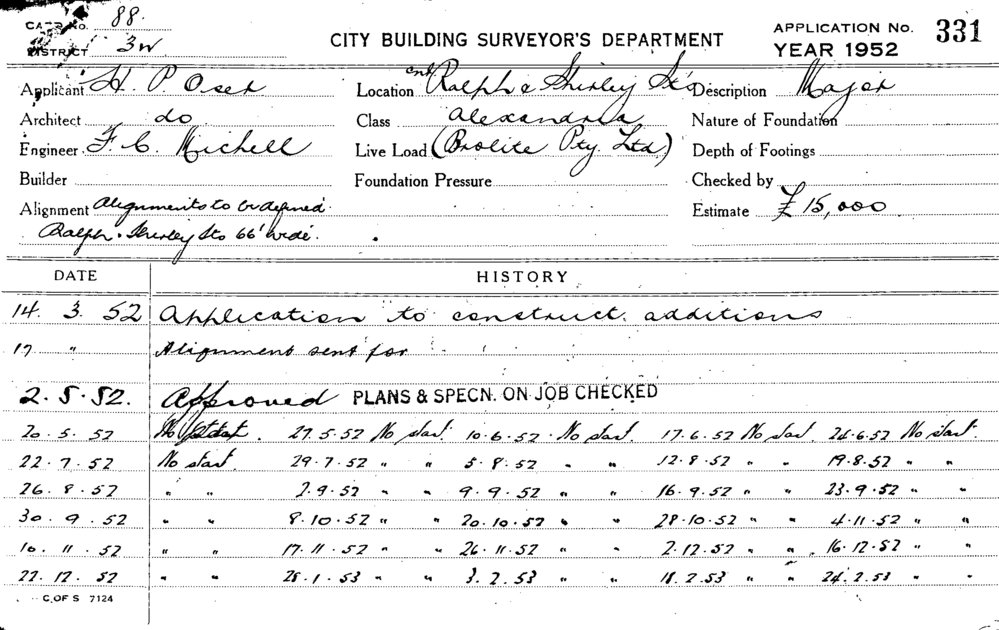 CARD No. 88.
DISTRICT 3W
CITY BUILDING SURVEYOR'S DEPARTMENT
APPLICATION No. 331
YEAR 1952
Applicant H. P. Oser Location cnr Ralph & Shirley Sts Description Major
Architect do Class Alexandria Nature of Foundation
Engineer F. C. Michell Live Load (Brolite Pty. Ltd.) Depth of Footings
Builder Foundation Pressure Checked by
Alignment Alignments to be defined. Estimate £ 15,000
Ralph & Shirley Sts 66' wide.
DATE HISTORY
14. 3. 52 Application to construct additions
17 " Alignment sent for
2. 5. 52. Approved PLANS & SPECN. ON JOB CHECKED
20. 5. 52 No start. 27.5.52 No start. 10.6.52. No start. 17.6.52 No start. 24.6.52 No start.
22. 7. 52 No start. 29.7.52 " " 5.8.52 " " 12.8.52 " " 19.8.52 " "
26. 8. 52 " " 2.9.52 " " 9.9.52 " " 16.9.52 " " 23.9.52 " "
30. 9. 52 " " 8.10.52 " " 20.10.52 " " 28.10.52 " " 4.11.52 " "
10. 11. 52 " " 17.11.52 " " 26.11.52 " " 2.12.52 " " 16.12.52 " "
22. 12. 52 " " 28.1.53 " " 3.2.53 " " 18.2.53 " " 24.2.53 " "
C. OF S 7124